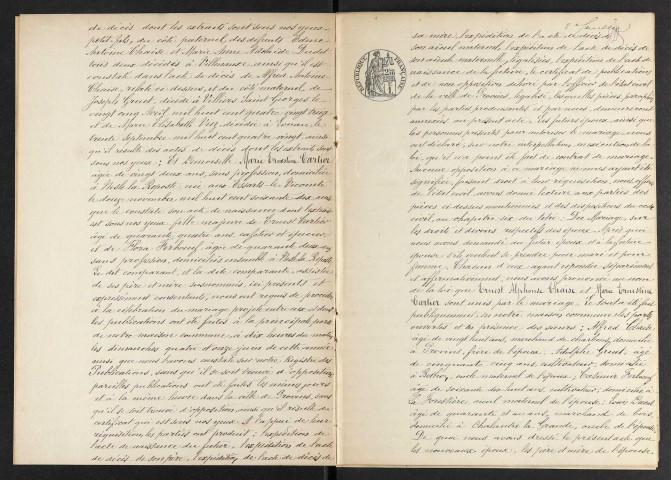 de décès dont les extraits sont sous nos yeux
petit-fils, du côté paternel, des défunts Edme
Antoine Chaise et Marie Anne Adélaïde
tous deux décédés à Villenauxe, ainsi qu'il est
constaté dans l'acte de décès de Alfred Antoine
Chaise, relaté ci dessus, et du côté maternel de
Joseph Gruet, décédé à Villiers Saint Georges le
vingt avril mil huit cent quatre vingt
et de Marie Elisabeth décédée à le
trente Septembre mil huit cent quatre vingt ainsi
qu'il résulte des actes de décès dont les extraits sont
sous nos yeux ; Et Demoiselle Marie Ernestine Cartier
âgée de vingt deux ans, sans profession, domiciliée
à Nesle la Reposte née aux Essarts le Vicomte
le douze novembre mil huit cent soixante dix ainsi
que le constate son acte de naissance dont l'extrait
est sous nos yeux, fille majeure de Ernest Cartier
âgé de quarante quatre ans, cafetier et épicier,
et de Flora Perboeuf âgée de quarante deux ans
sans profession, domiciliés ensemble à Nesle la Reposte
Le dit comparant, et la dite comparante assistée
de ses père et mère susnommés, ici présents et
expressément consentants, nous ont requis de procéder
à la célébration du mariage projeté entre eux et dont
les publications ont été faites à la principale porte
de notre maison commune à dix heures du matin
les dimanches quatre et onze juin de cette année
ainsi que nous l'avons constaté sur notre Registre des
Publications, sans qu'il se soit trouvé d'opposition,
pareilles publications ont été faites les mêmes jours
et à la même heure dans la ville de Provins, sans
qu'il se soit trouvé d'opposition, ainsi que il résulte du
certificat qui est sous nos yeux. A l'appui de leur
réquisition les parties ont produit : l'expédition de
l'acte de naissance du futur, l'expédition de l'acte
de décès de son père, l'expédition de l'acte de décès de
RÉPUBLIQUE FRANÇAISE
sa mère, l'expédition de l'acte de décès de
son aïeul maternel, l'expédition de l'acte de décès de
son aïeule maternelle, légalisées, l'expédition de l'acte de
naissance de la future, le certificat de publications
et de non opposition délivré par l'officier de l'état civil de
la ville de Provins, légalisé, lesquelles pièces paraphées
par les parties produisantes et par nous, demeureront
annexées au présent acte. Les futurs époux, ainsi que
les personnes présentes pour autoriser le mariage, nous
ont déclaré, sur notre interpellation, en exécution de la
loi, qu'il n'a point été fait de contrat de mariage.
Aucune opposition à ce mariage ne nous ayant été
signifiée, faisant droit à leur réquisition, nous officier
de l'état civil, avons donné lecture aux parties des
pièces ci-dessus mentionnées et des dispositions du code
civil, au chapitre six du titre : Du Mariage, sur
les droits et devoirs respectifs des époux. Après quoi
nous avons demandé au futur époux et à la future
épouse s'ils veulent se prendre pour mari et pour
femme. Chacun d'eux ayant répondu séparément
et affirmativement, nous avons prononcé au nom
de la loi que Ernest Alphonse Chaise et Marie Ernestine
Cartier sont unis par le mariage. Le tout a été fait
publiquement en notre maison commune les portes
ouvertes et en présence des sieurs : Alfred Chaise
âgé de vingt huit ans, marchand de charbons, domicilié
à Provins, frère de l'époux. Adolphe Gruet, âgé
de cinquante cinq ans, cultivateur, domicilié
à oncle maternel de l'époux, Perboeuf
âgé de soixante dix huit ans, cultivateur, domicilié à
la Forestière, aïeul maternel de l'épouse, Louis
âgé de quarante et un ans, marchand de bois,
domicilié à Chalautre la Grande, oncle de l'épouse.
De quoi nous avons dressé le présent acte que
les nouveaux époux, les père et mère de l'épouse,